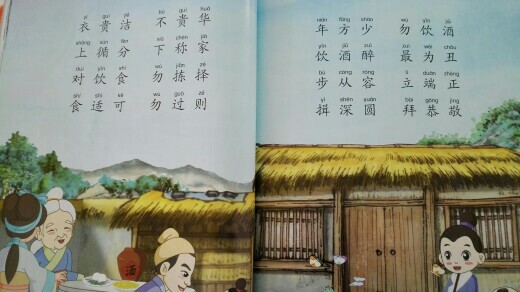 yī guì jié bú guì huá
衣贵洁 不贵华
shàng xún fèn xià chèn jiā
上循分 下称家
duì yǐn shí wù jiǎn zé
对饮食 勿拣择
shí shì kě wù guò zé
食适可 勿过则
酒
nián fāng shào wù yǐn jiǔ
年方少 勿饮酒
yǐn jiǔ zuì zuì wéi chǒu
饮酒醉 最为丑
bù cóng róng lì duān zhèng
步从容 立端正
yī shēn yuán bài gōng jìng
揖深圆 拜恭敬